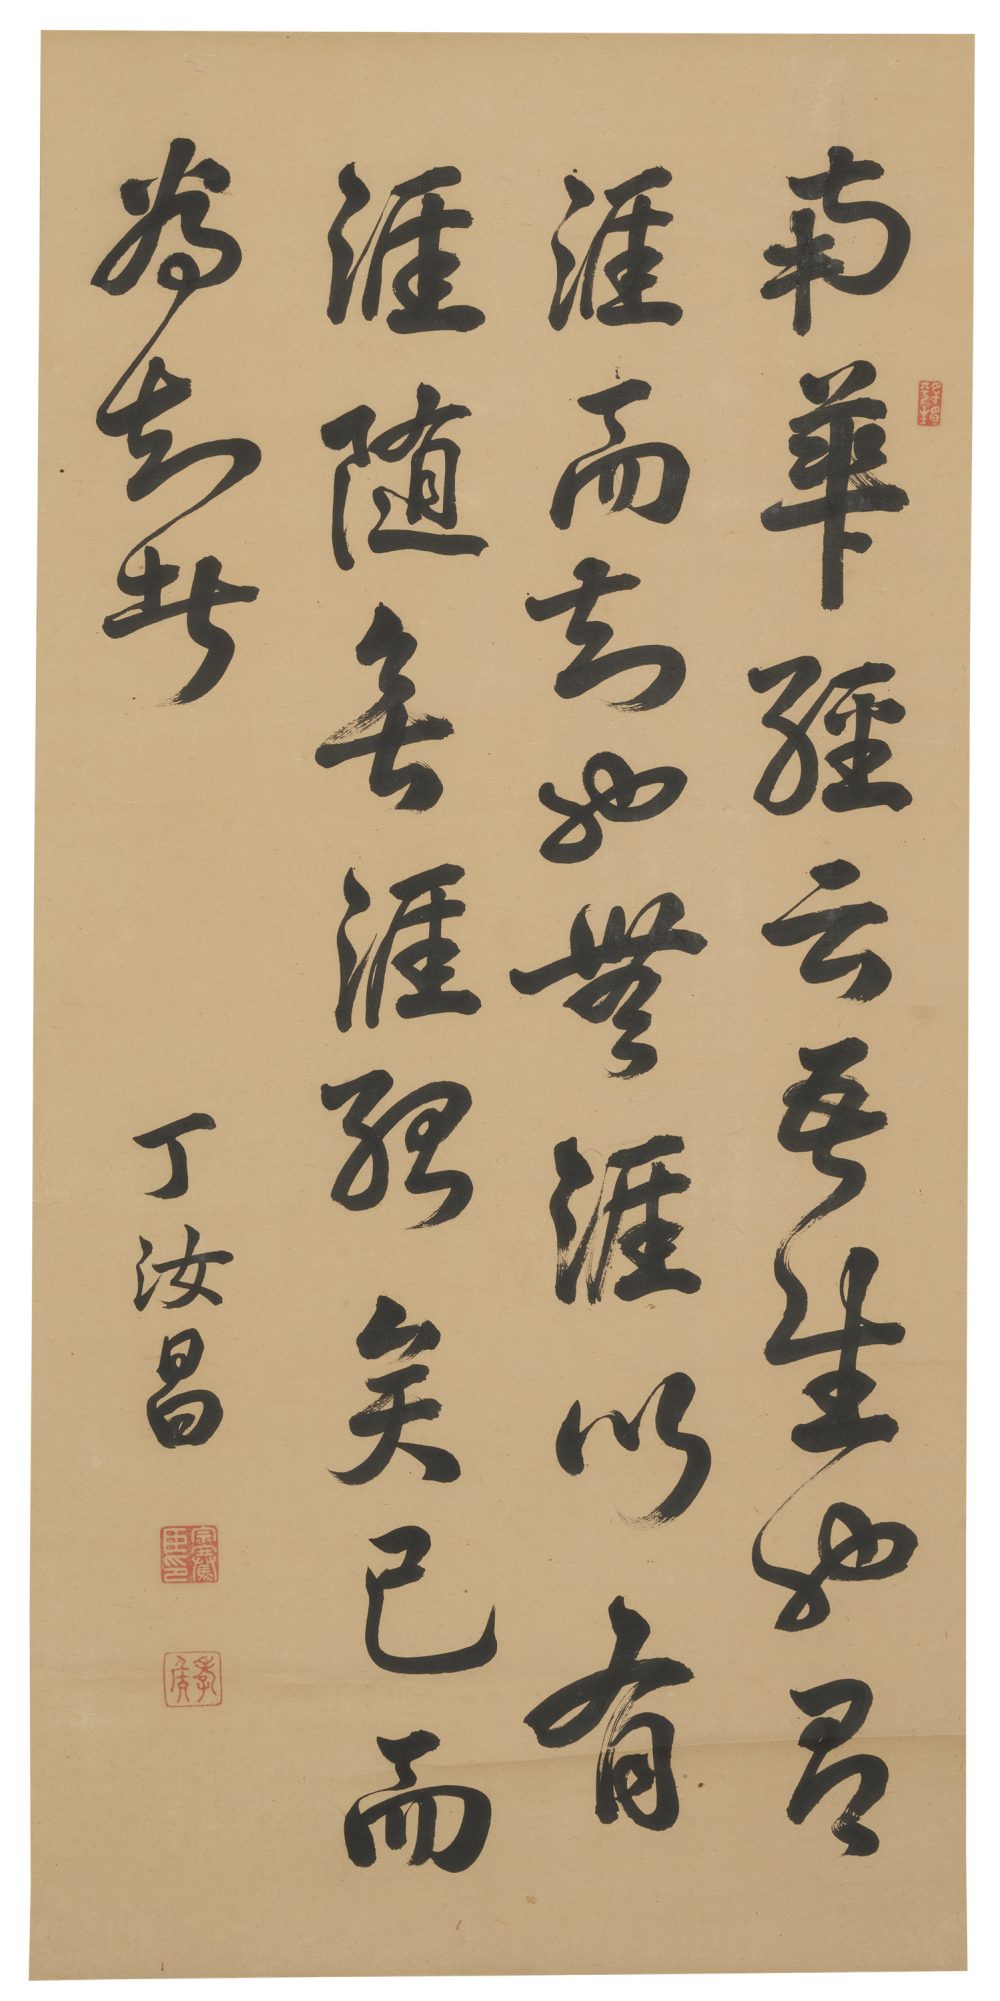 南華經云吾生也有
涯而知也無涯以有
涯随無涯殆矣已而
為知者
丁汝昌
孝侯